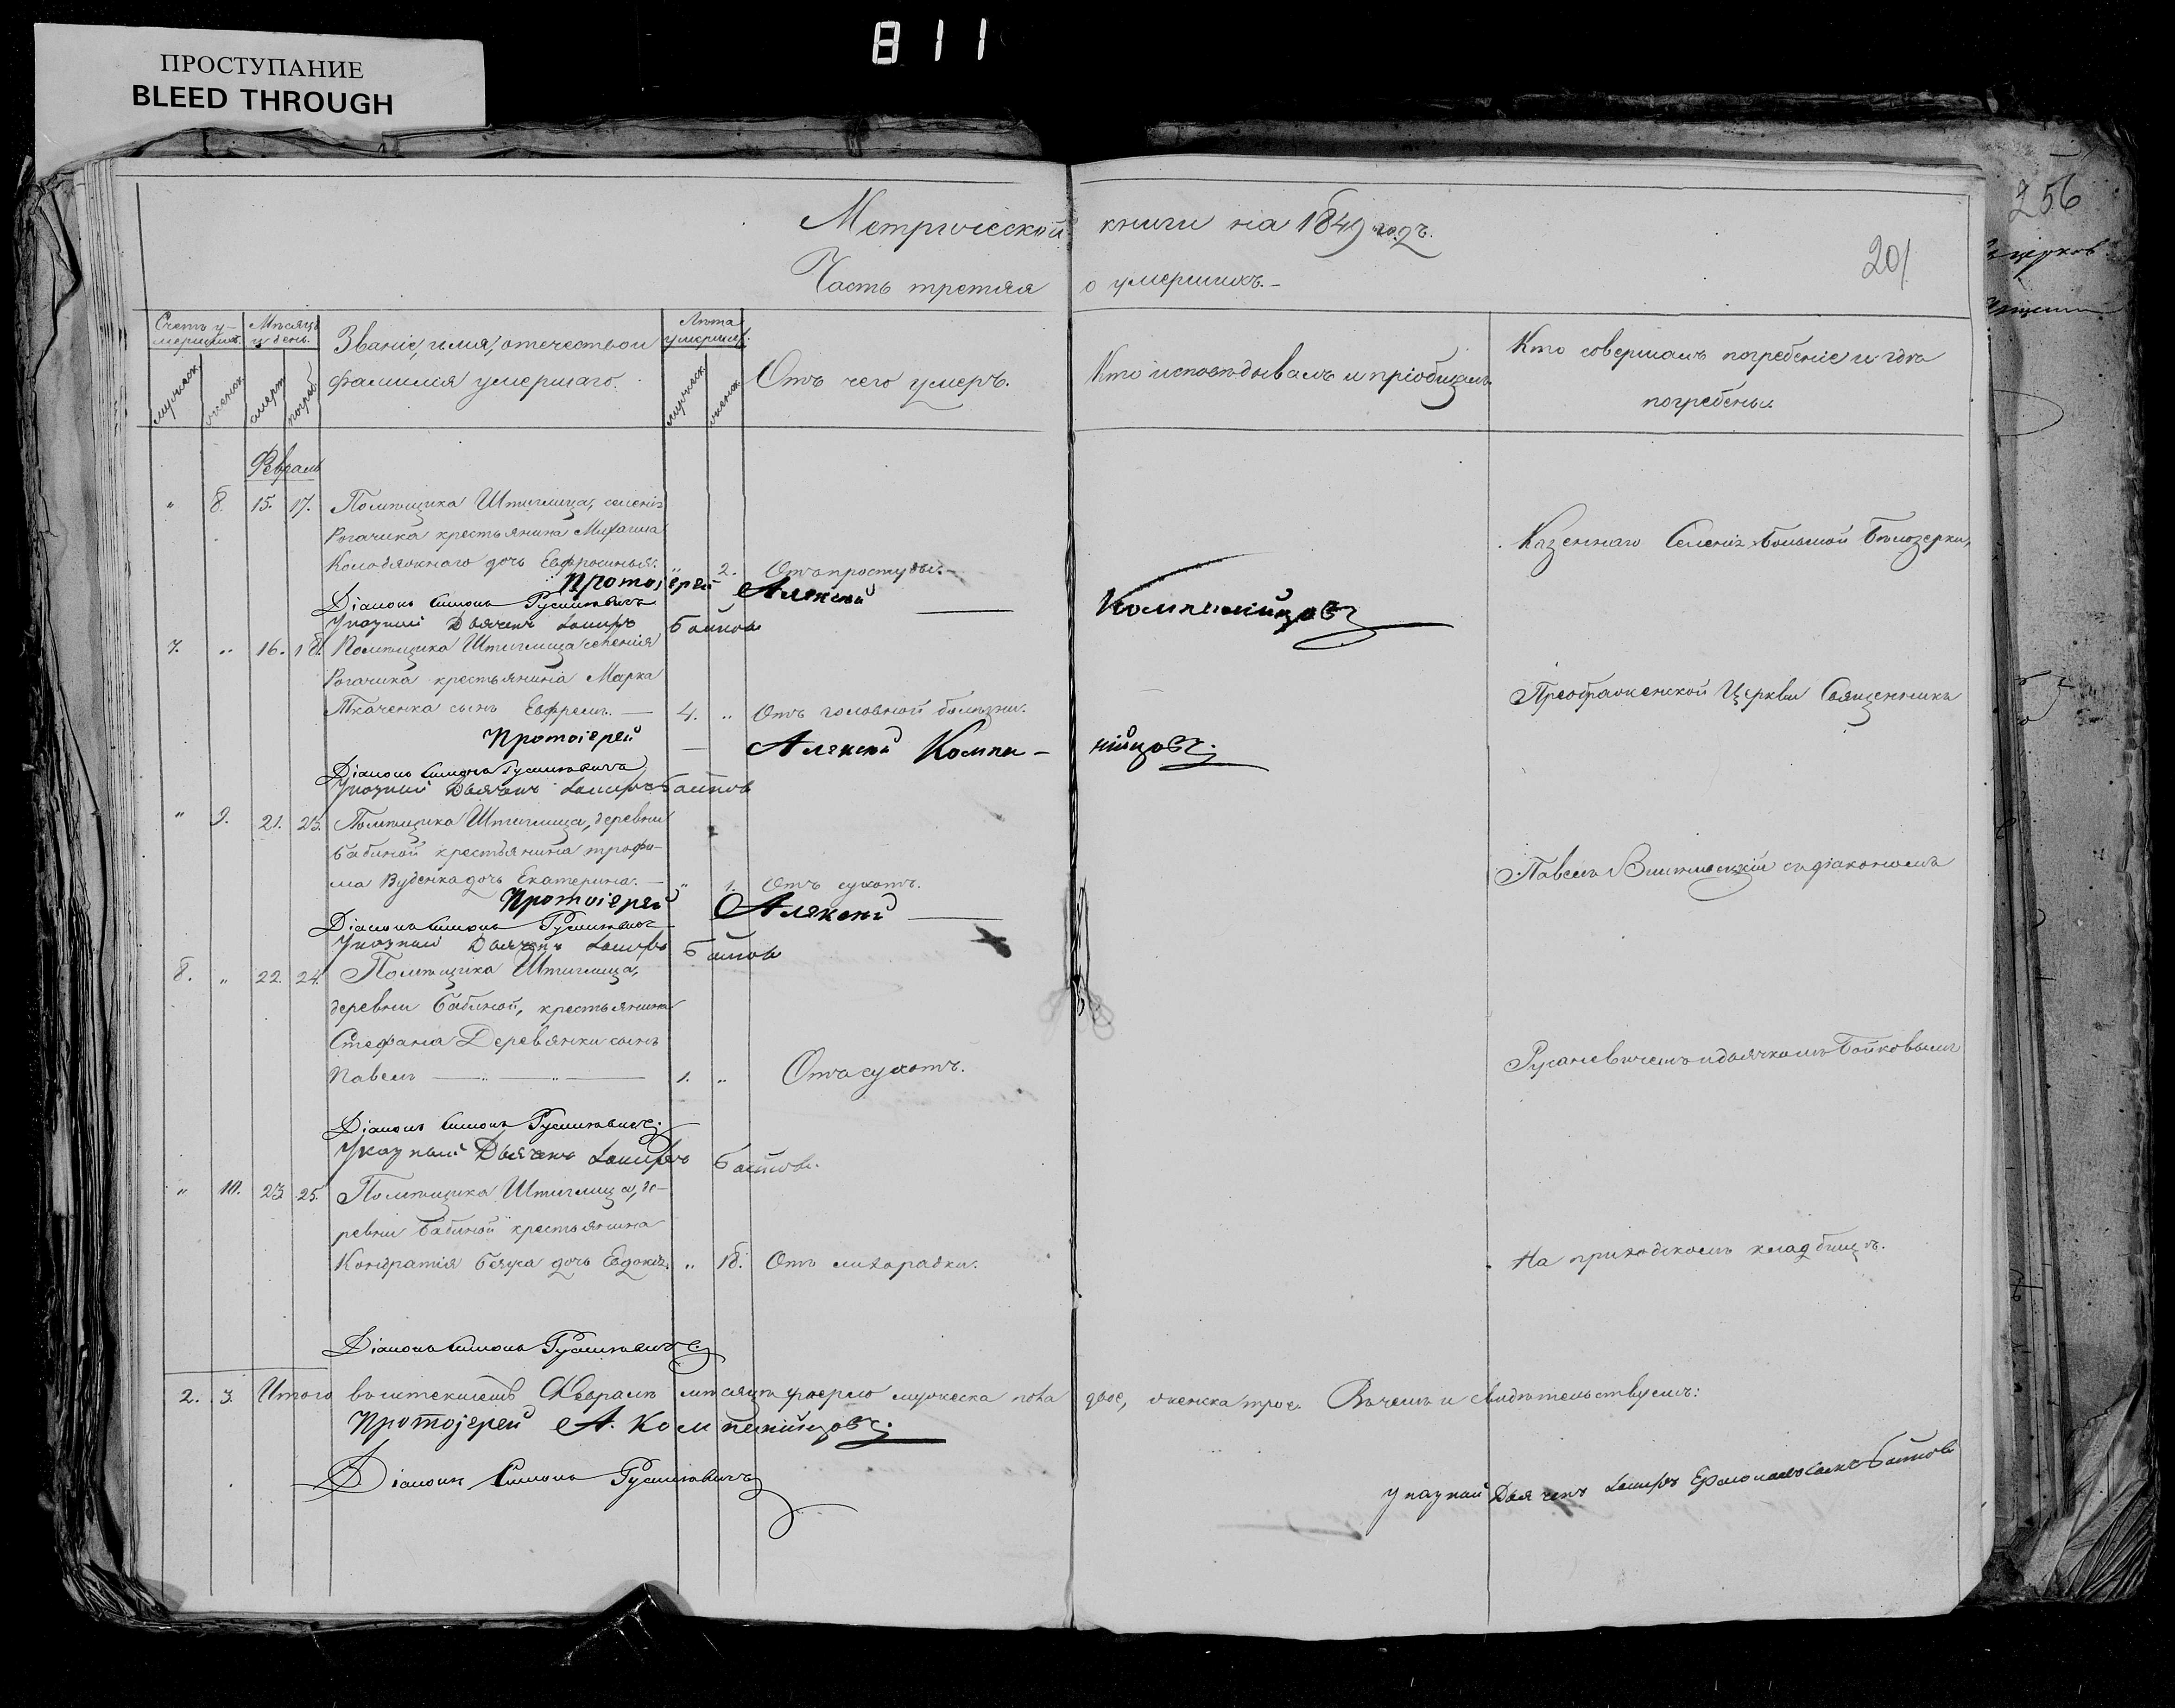 811
ПРОСТУПАНИЕ
BLEED THROUGH
256
201
Метрической книги на 1849 годъ.
Часть третяя о умершихъ.
Счетъ у-мершихъ.
Мѣсяцъ и день.
Званіе, имя, отчество и фамилія умершаго.
Лѣта умершаго.
Отъ чего умеръ.
Кто исповѣдывалъ и пріобщалъ.
Кто совершалъ погребеніе и гдѣ погребены.
мужеск.
женск.
смерт.
погреб.
мужеск.
женск.
Февраль
" 8. 15. 17. Помѣщика Штиглица, селенія
Рогачика крестьянина Михаила
дочь Евфросинья. " 2. Отъ простуды.
Казеннаго Селенія Большой Бѣлозерки,
Протоіерей Алексій Компанійцовъ
Діаконъ Симонъ Русаневичъ
Указный Дьячекъ Бойковъ
7. " 16. 18. Помѣщика Штиглица селенія
Рогачика крестьянина Марка
Ткаченка сынъ Евфремъ. 4. " Отъ головной болѣзни.
Преображенской Церкви Священникъ
Протоіерей Алексій Компанійцовъ.
Діаконъ Симонъ Русаневичъ
Указный Дьячекъ Бойковъ
" 9. 21. 23. Помѣщика Штиглица, деревни
Бабиной крестьянина Трофи-
ма дочь Екатерина. " 1. Отъ сухотъ.
Павелъ съ діакономъ
Протоіерей Алексій
Діаконъ Симонъ Русаневичъ
Указный Дьячекъ Бойковъ
8. " 22. 24. Помѣщика Штиглица,
деревни Бабиной, крестьянина
Стефана Деревянки сынъ
Павелъ 1. " Отъ сухотъ.
Русаневичемъ и дьячкомъ Бойковымъ
Діаконъ Симонъ Русаневичъ.
Указный Дьячекъ Бойковъ.
" 10. 23 25. Помѣщика Штиглица, де-
ревни Бабиной крестьянина
Кондратія дочь Евдокія. " 18. Отъ лихорадки.
На приходскомъ кладбищѣ.
Діаконъ Симонъ Русаневичъ
2. 3. Итого въ истекшемъ Февралѣ мѣсяцѣ умерло мужеска пола двое, женска трое. Въ чемъ и свидѣтельствуемъ:
Протоіерей А. Компанійцовъ.
Діаконъ Симонъ Русаневичъ
Указный Дьячекъ Бойковъ